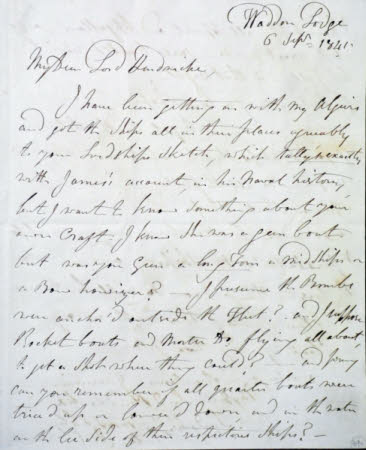 Waddon Lodge
6 Sepr. 1841.
My Dear Lord Hardwicke
I have been getting on with my Algiers
and got the Ships all in their places agreeably
to your Lordships Sketch, which tally's exactly
with James's account in his Naval history,
but I want to know something about your
own Craft. I know She was a gun boat
but was your Gun a long Tom a midships or
a Bow howitzer? — I presume the Bombs
were anchor'd outside the Fleet? and I suppose
Rocket boats and Mortar Do flying all about
to get a Shot where they could? — and pray
can you remember if all quarter boats were
triced up or lower'd down and in the water
on the lee side of their respective Ships? —